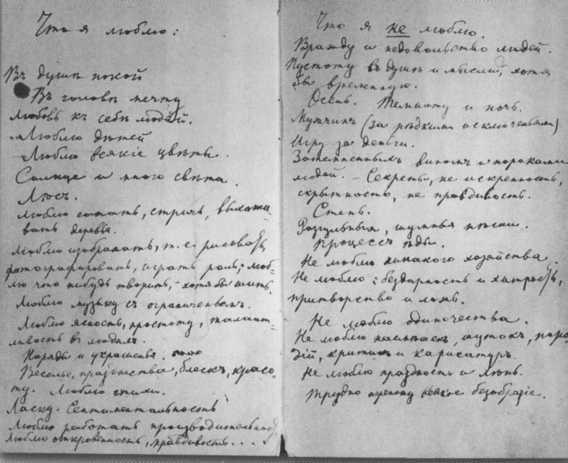 Что я люблю:
Въ душѣ покой
Въ головѣ мечту
Любовь къ себѣ людей.
Люблю дѣтей
Люблю всякіе цвѣты.
Солнце и много свѣта.
Лѣсъ.
Люблю сажать, стричь, выхажи-
вать деревья.
Люблю изображать, т. е. рисовать,
фотографировать, играть роль, люб-
лю что нибудь творить, хотя бы шить.
Люблю музыку съ ограниченьемъ.
Люблю ясность, простоту, талант-
ливость въ людяхъ.
Наряды и украшенья.
Веселье, празднества, блескъ, красо-
ту. Люблю стихи.
Ласку. Сентиментальность
Люблю работать производительно
Люблю откровенность, правдивость...
Что я не люблю.
Вражду и недовольство людей.
Пустоту въ душѣ и мысляхъ, хотя
бы временную.
Осень. Темноту и ночь.
Мужчинъ (за рѣдкими исключеньями)
Игру за деньги.
Затемненныхъ виномъ и пороками
людей. – Секреты, не искренность,
скрытность, не правдивость.
Степь.
Разгульныя, шумныя пѣсни.
Процессъ ѣды.
Не люблю никакого хозяйства.
Не люблю: бездарность и хитрость,
притворство и ложь.
Не люблю одиночества.
Не люблю насмѣшекъ, шутокъ, паро-
дій, критики и карикатуръ.
Не люблю праздность и лѣнь.
Трудно переношу всякое безобразіе.